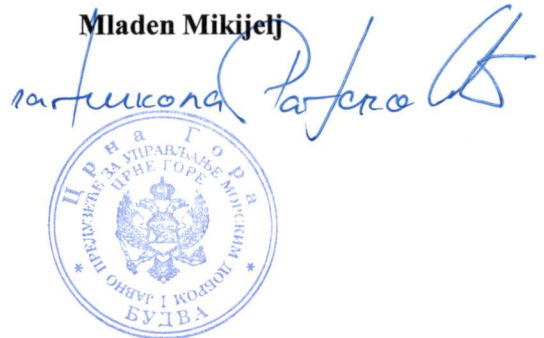 Mladen Mikijelj
Црна Гора
ЈАВНО ПРЕДУЗЕЋЕ ЗА УПРАВЉАЊЕ МОРСКИМ ДОБРОМ I
ЦРНЕ ГОРЕ
БУДВА